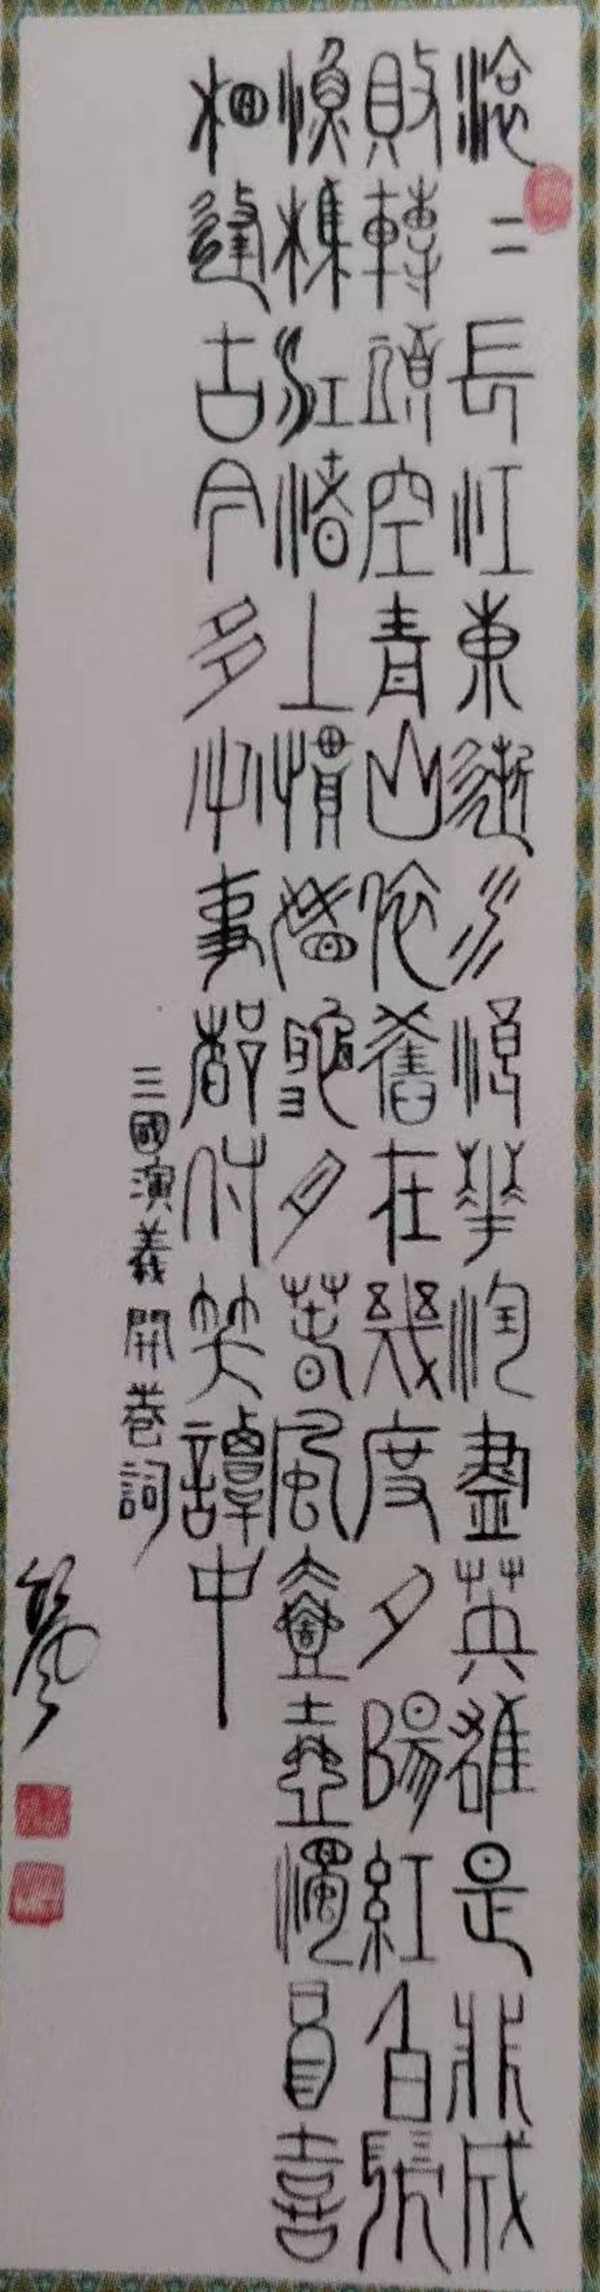 滾二長江東逝水浪華淘盡英雄是非成
敗轉頭空青山依舊在幾度夕陽紅白髮
漁樵江渚上慣看秋月春風壹壺濁酒喜
相逢古今多少事都付笑譚中
三國演義開卷詞